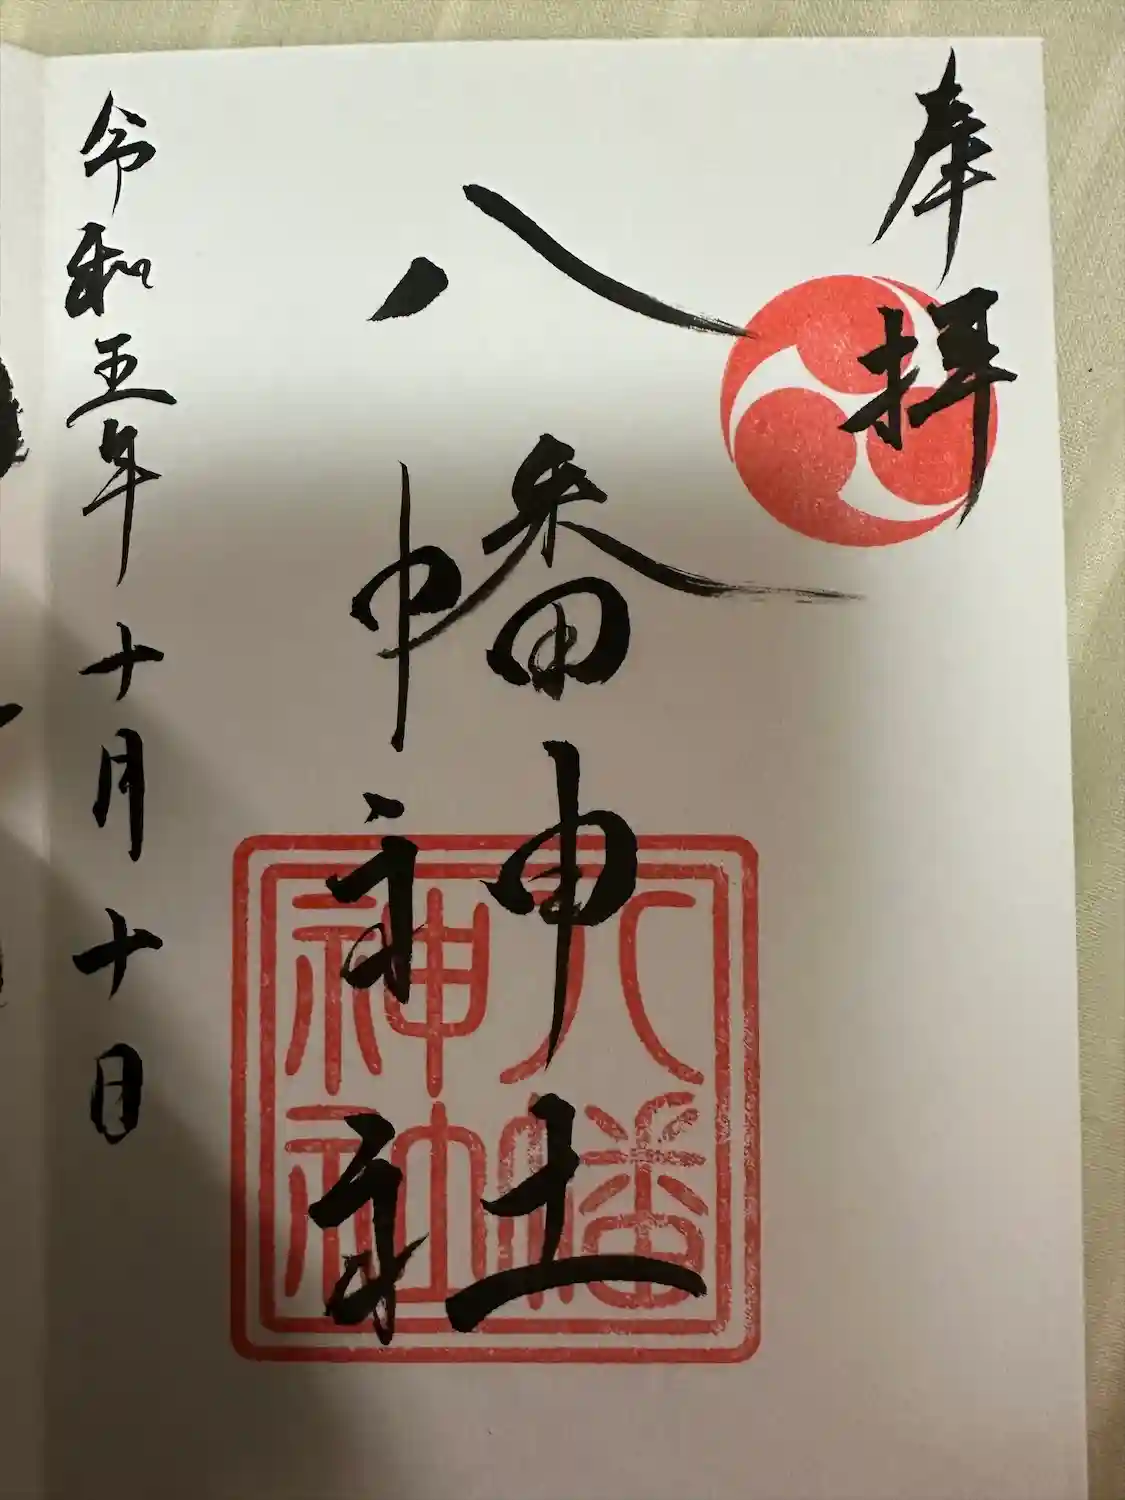 奉拝
八幡神社
八幡
神社
令和五年十月十日